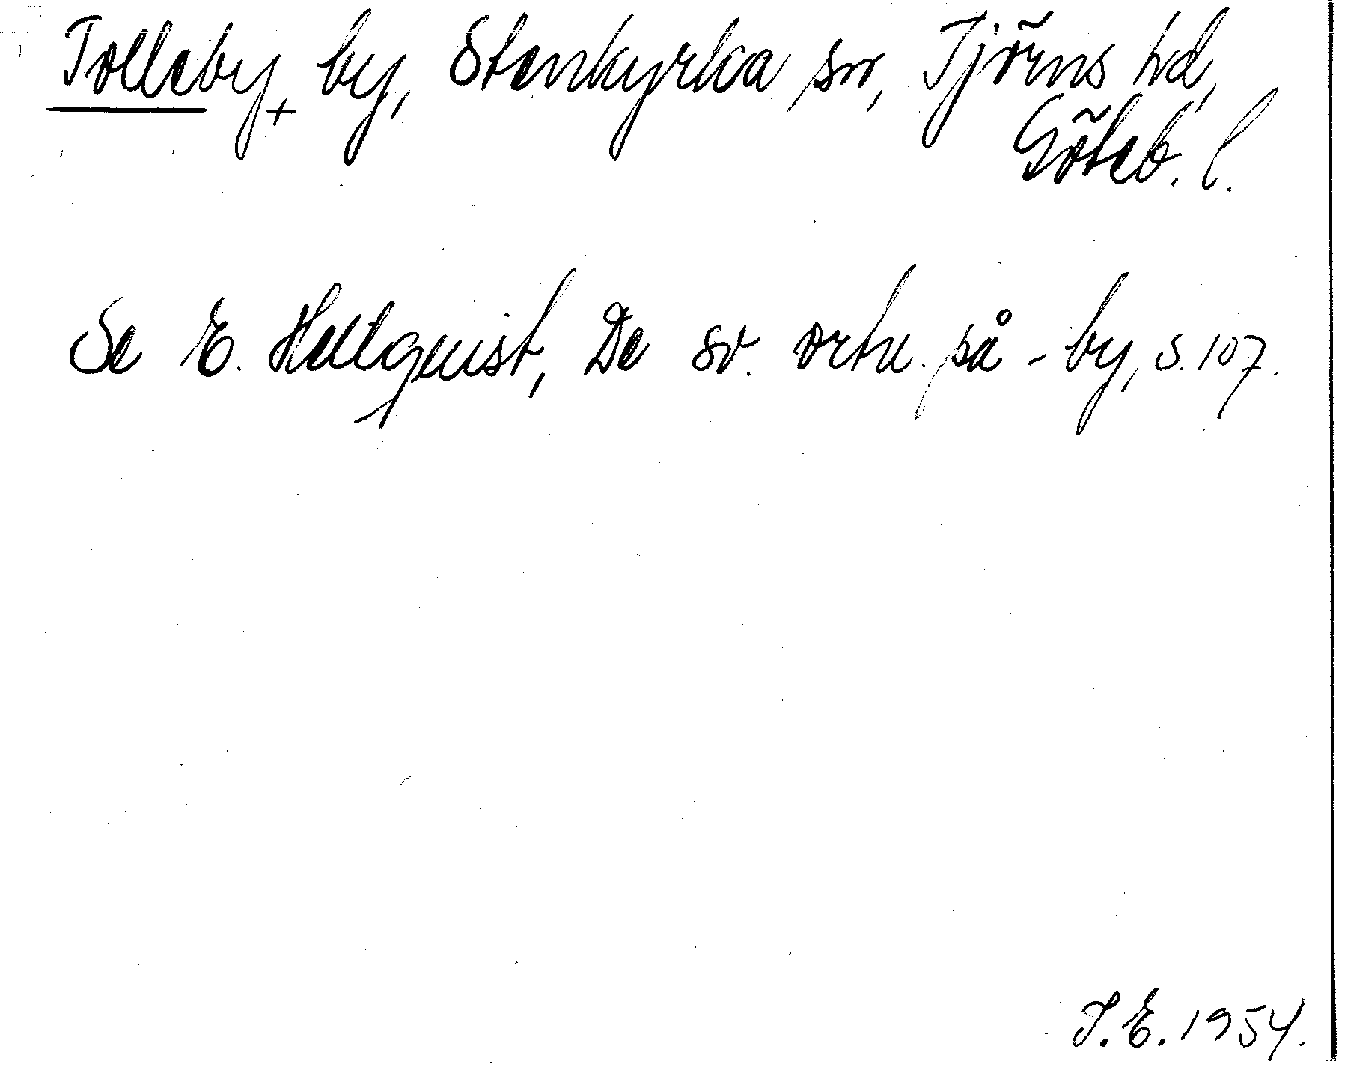 Tolleby, by, Stenkyrka sn, Tjörns hd,
Göteb. l.
Se E. Hellquist, De sv. ortn. på -by, s. 107.
I.E. 1954.